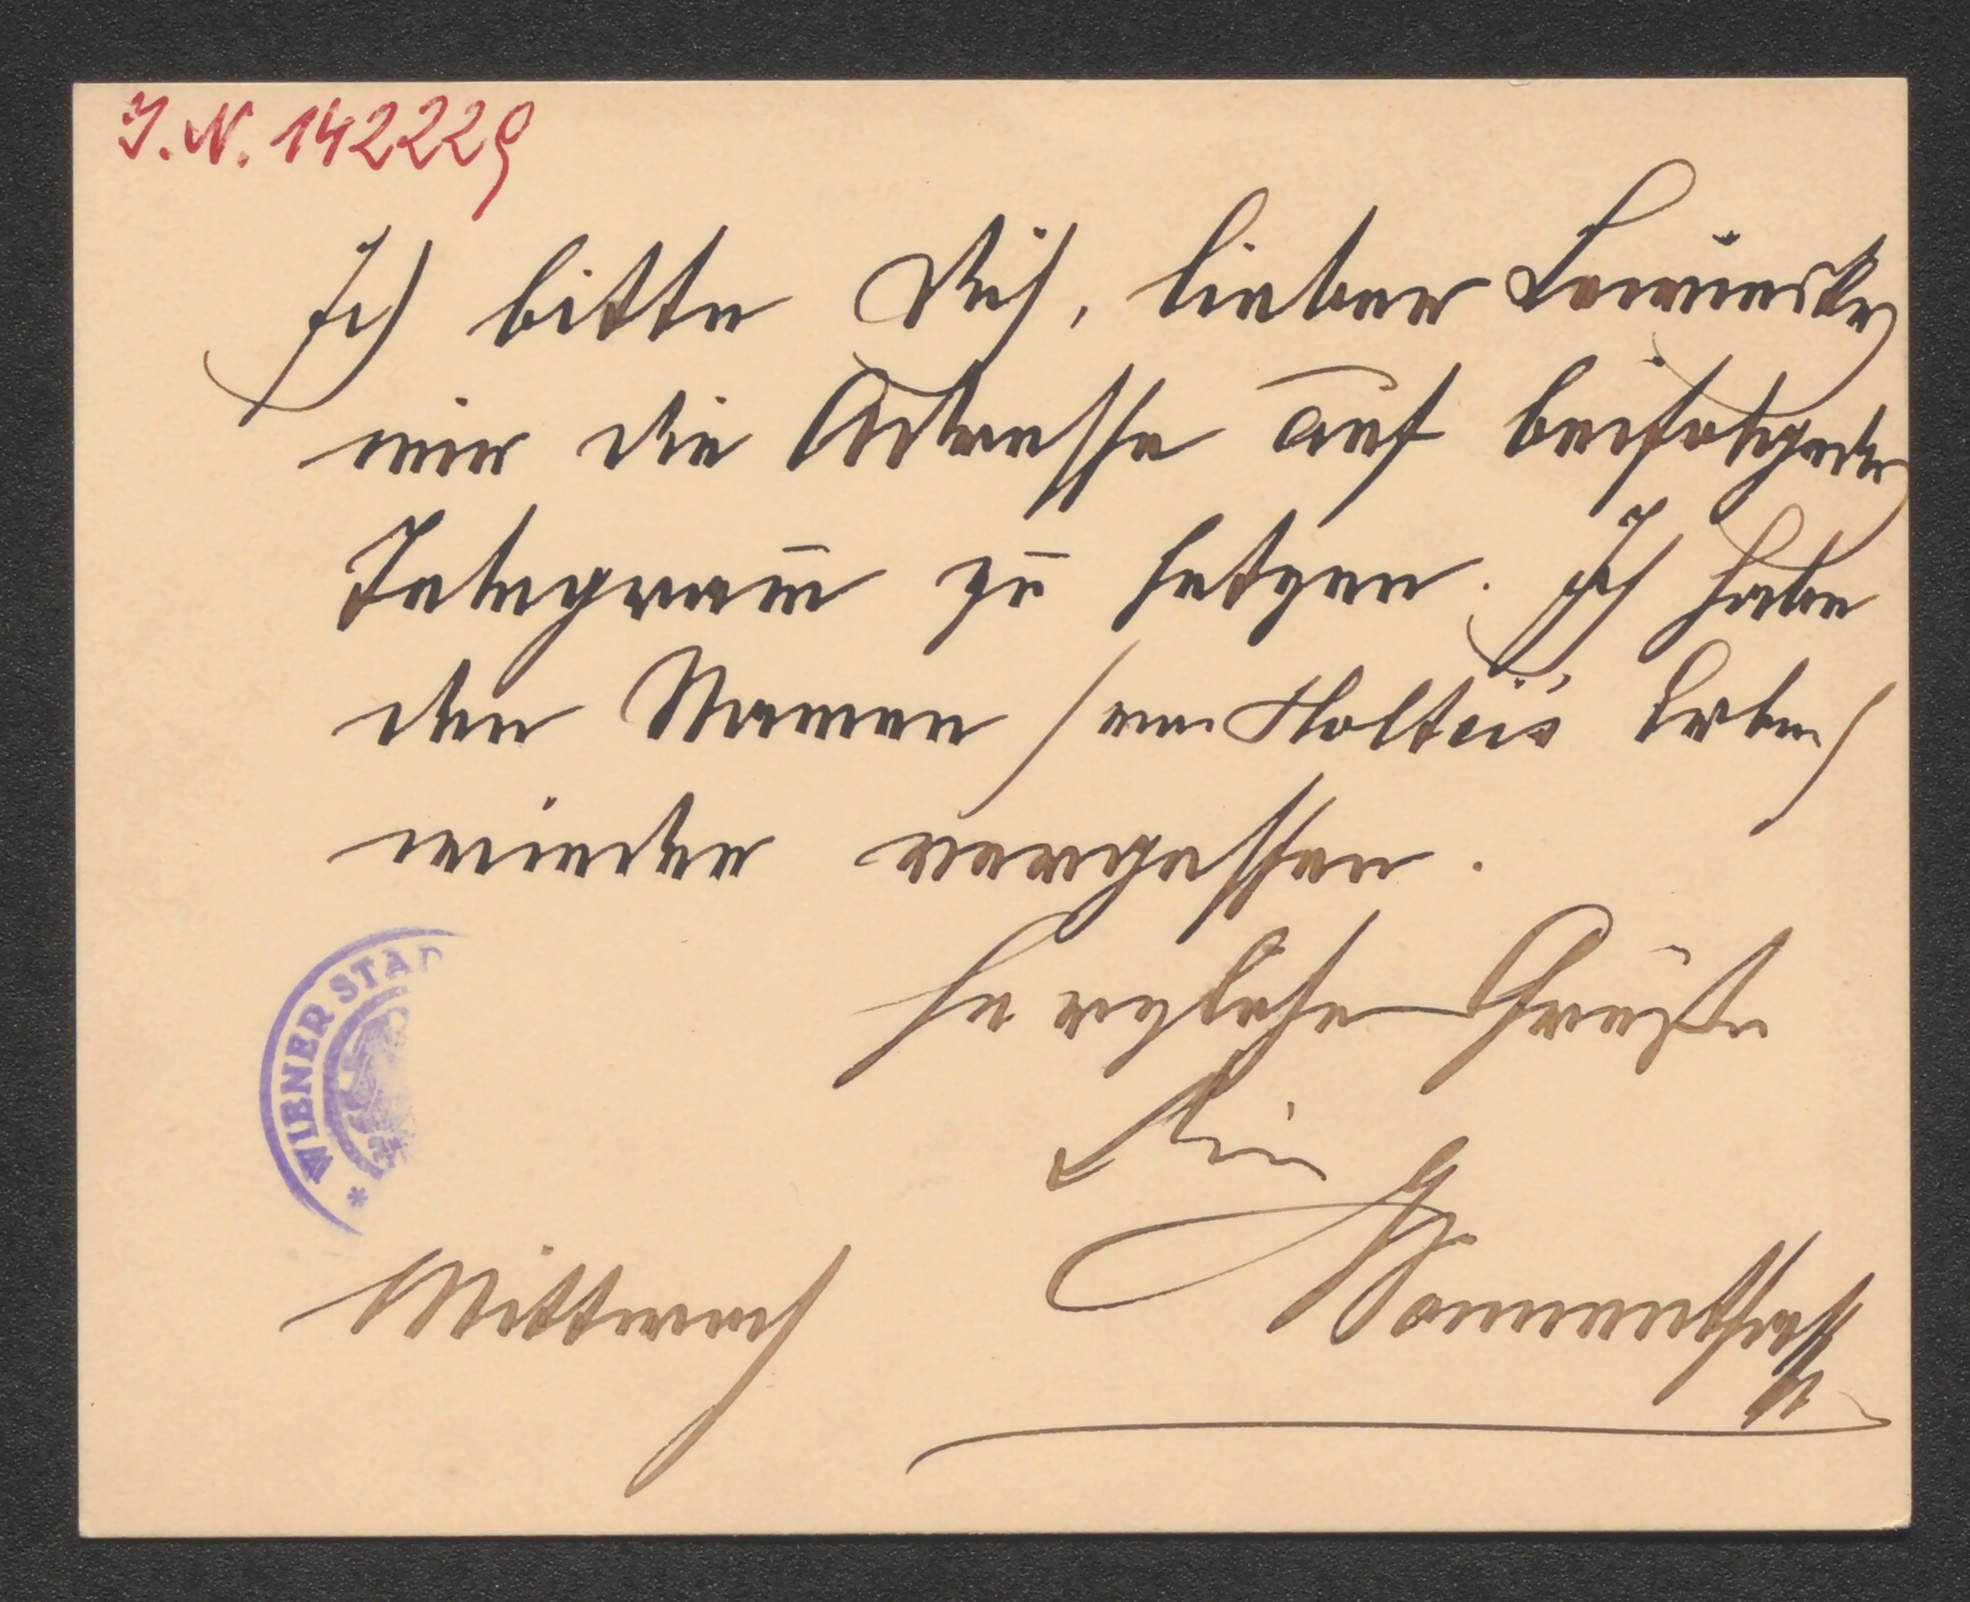 I.N. 142229
Ich bitte Dich, lieber Lewinsky
mir die Adresse auf beifolgendes
Telegramm zu setzen. Ich habe
den Namen (von Holtei's Erben)
wieder vergessen.
Herzliche Grüße
Dein
Sonnenthal
Mittwoch
WIENER STAD